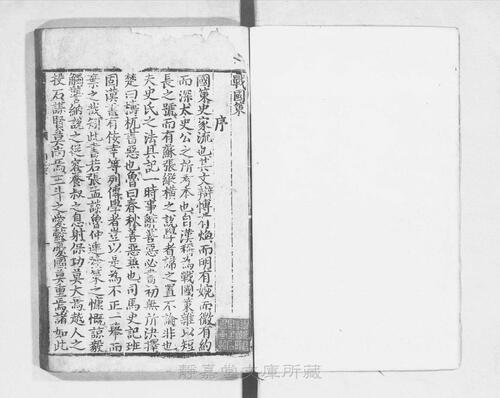 戰國策
序
國策史家流也其文辯博有煥而明有婉而微有約
而深太史公之所考本也自漢稱爲戰國策雜以短
長之號而有蘇張縱横之說學者諱之置不論非也
夫史氏之法具記一時事辭善惡必書初無所決擇
楚曰檮杌書惡也魯曰春秋善惡兼也司馬史記班
固漢書有佞幸等列傳學者豈以是爲不正一舉而
棄之哉矧此書若張孟談魯仲連發策之慷慨諒毅
觸讋納說之從容養叔之息射保功莫大焉越人之
投石謀賢莫尚焉王斗之愛縠憂國莫重焉諸如此
靜嘉堂文庫所藏